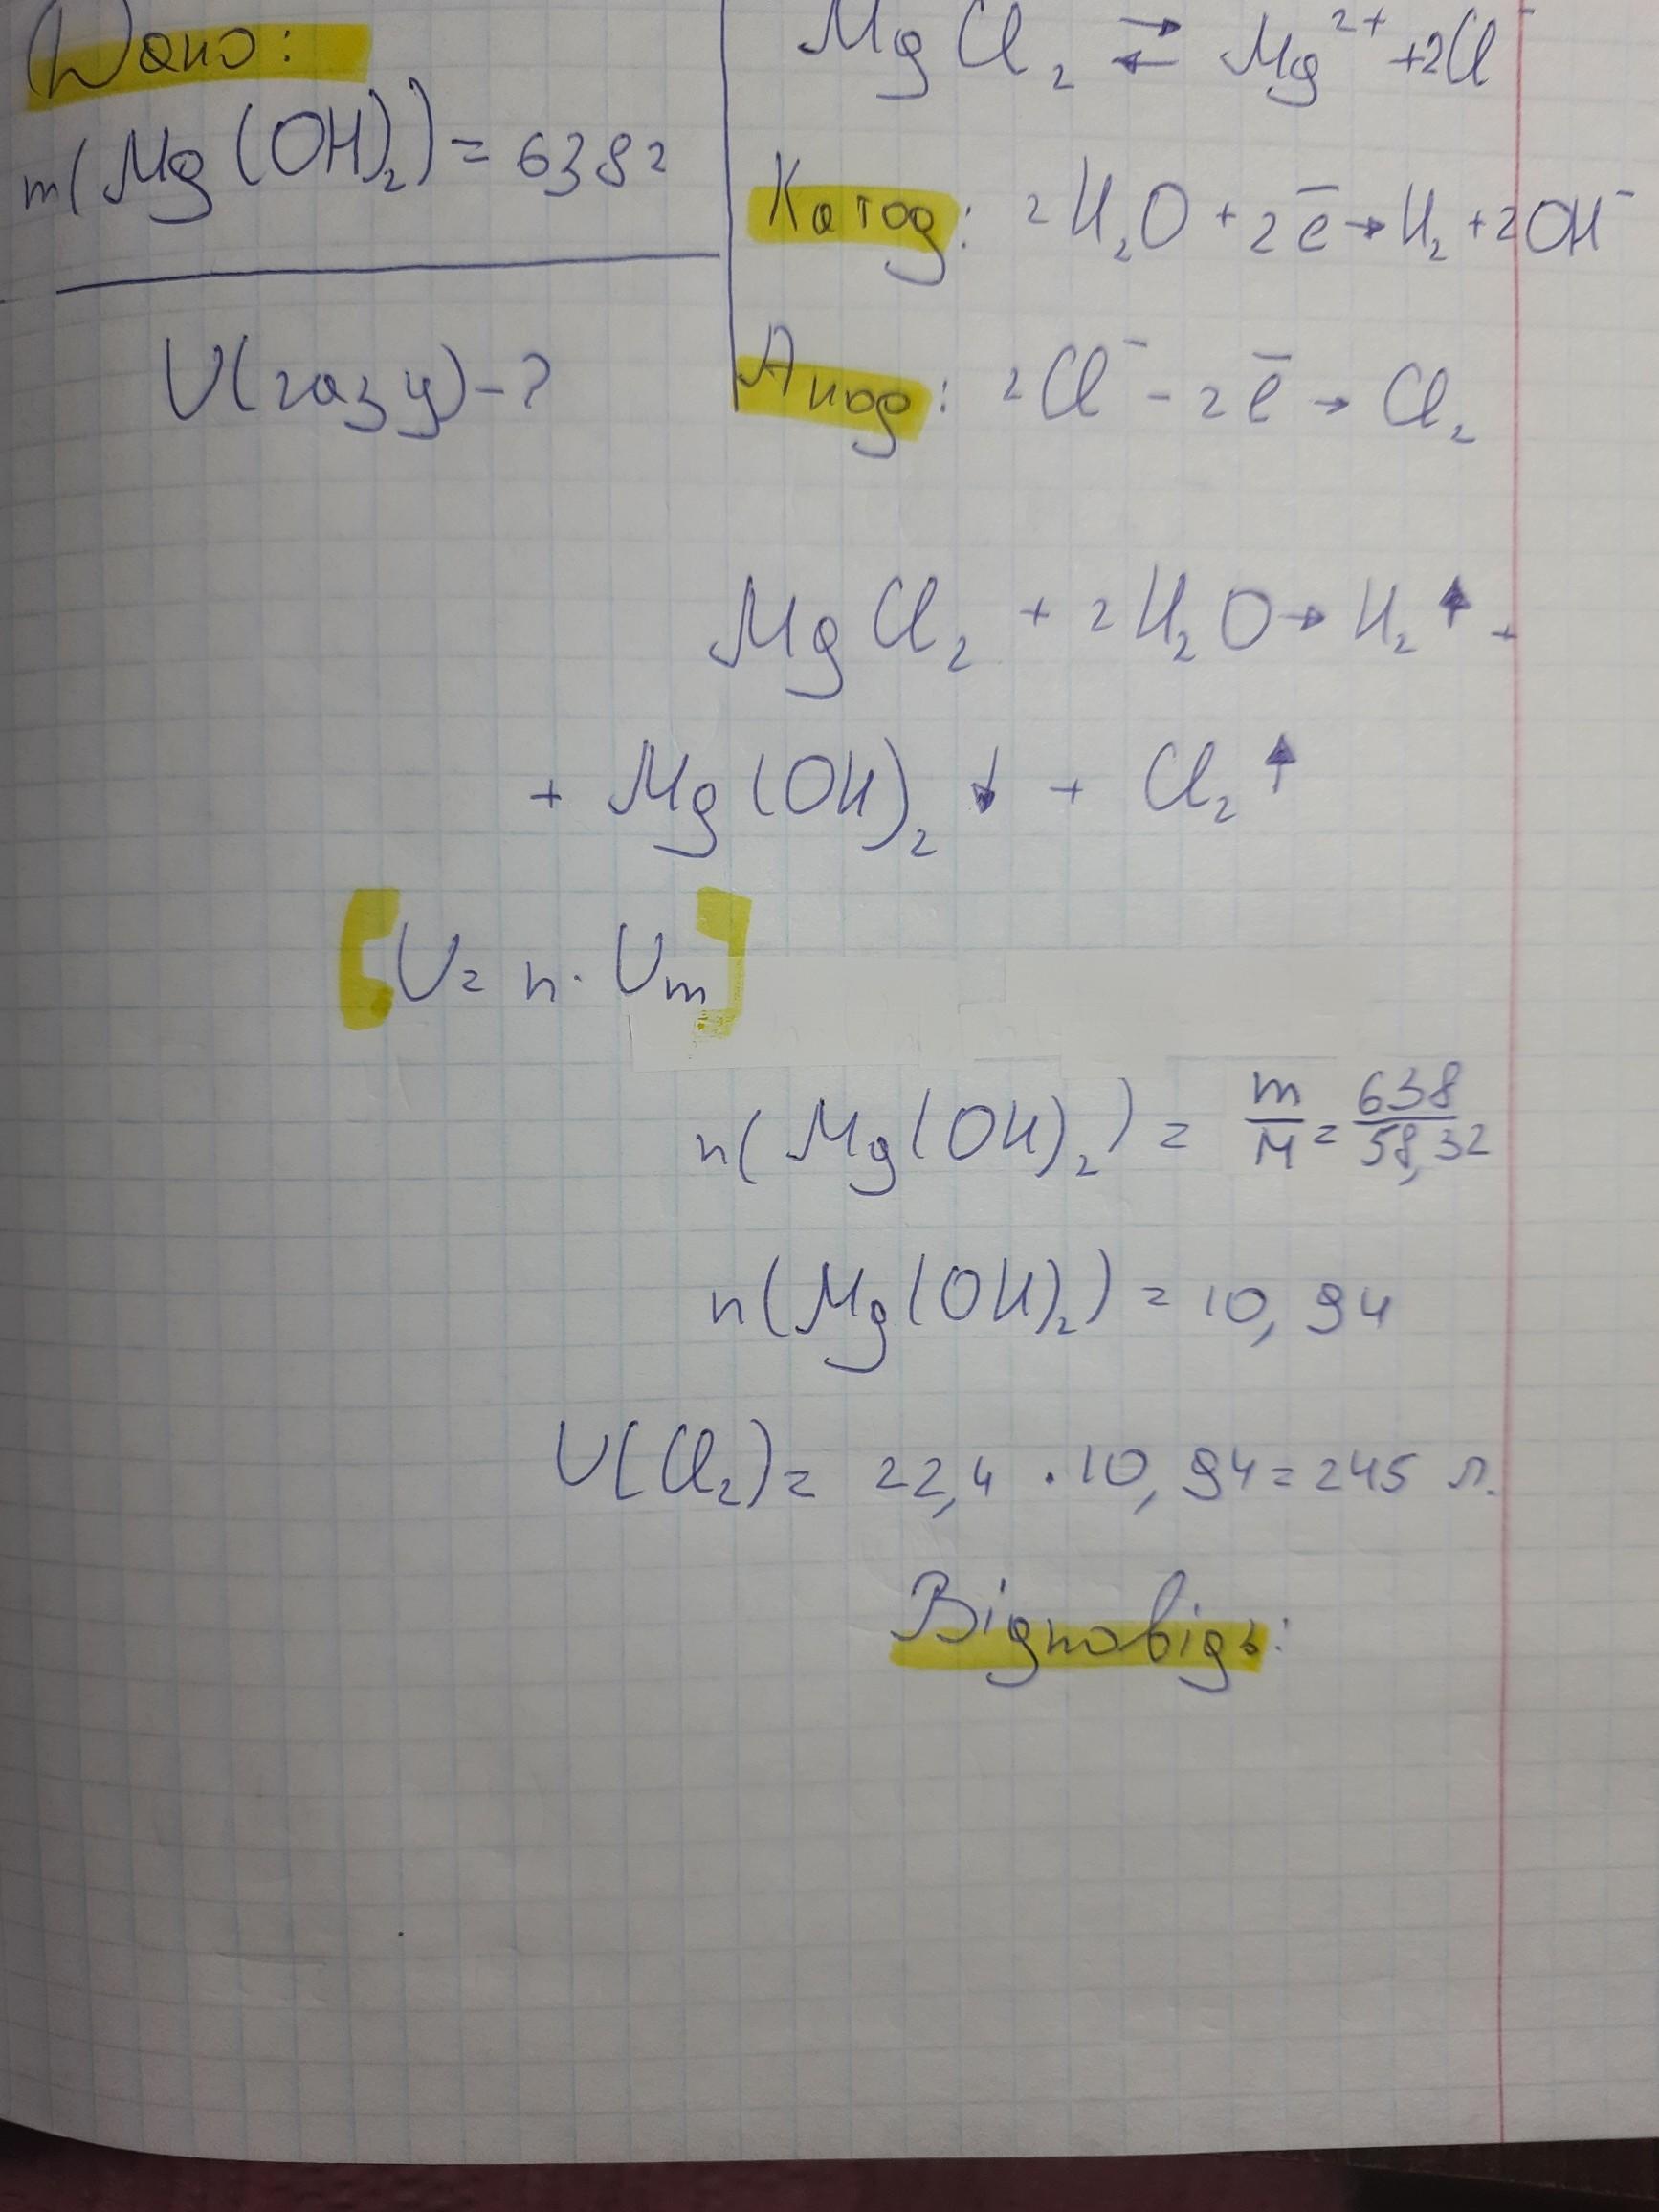 Дано:
m(Mg(OH)₂) = 638г
V(газу) - ?
MgCl₂ ⇄ Mg²⁺ + 2Cl⁻
Катод: 2H₂O + 2e̅ → H₂ + 2OH⁻
Анод: 2Cl⁻ - 2e̅ → Cl₂
MgCl₂ + 2H₂O → H₂↑ +
+ Mg(OH)₂↓ + Cl₂↑
V = n · Vm
n(Mg(OH)₂) = m/M = 638/58,32
n(Mg(OH)₂) = 10,94
V(Cl₂) = 22,4 · 10,94 = 245 л.
Відповідь: